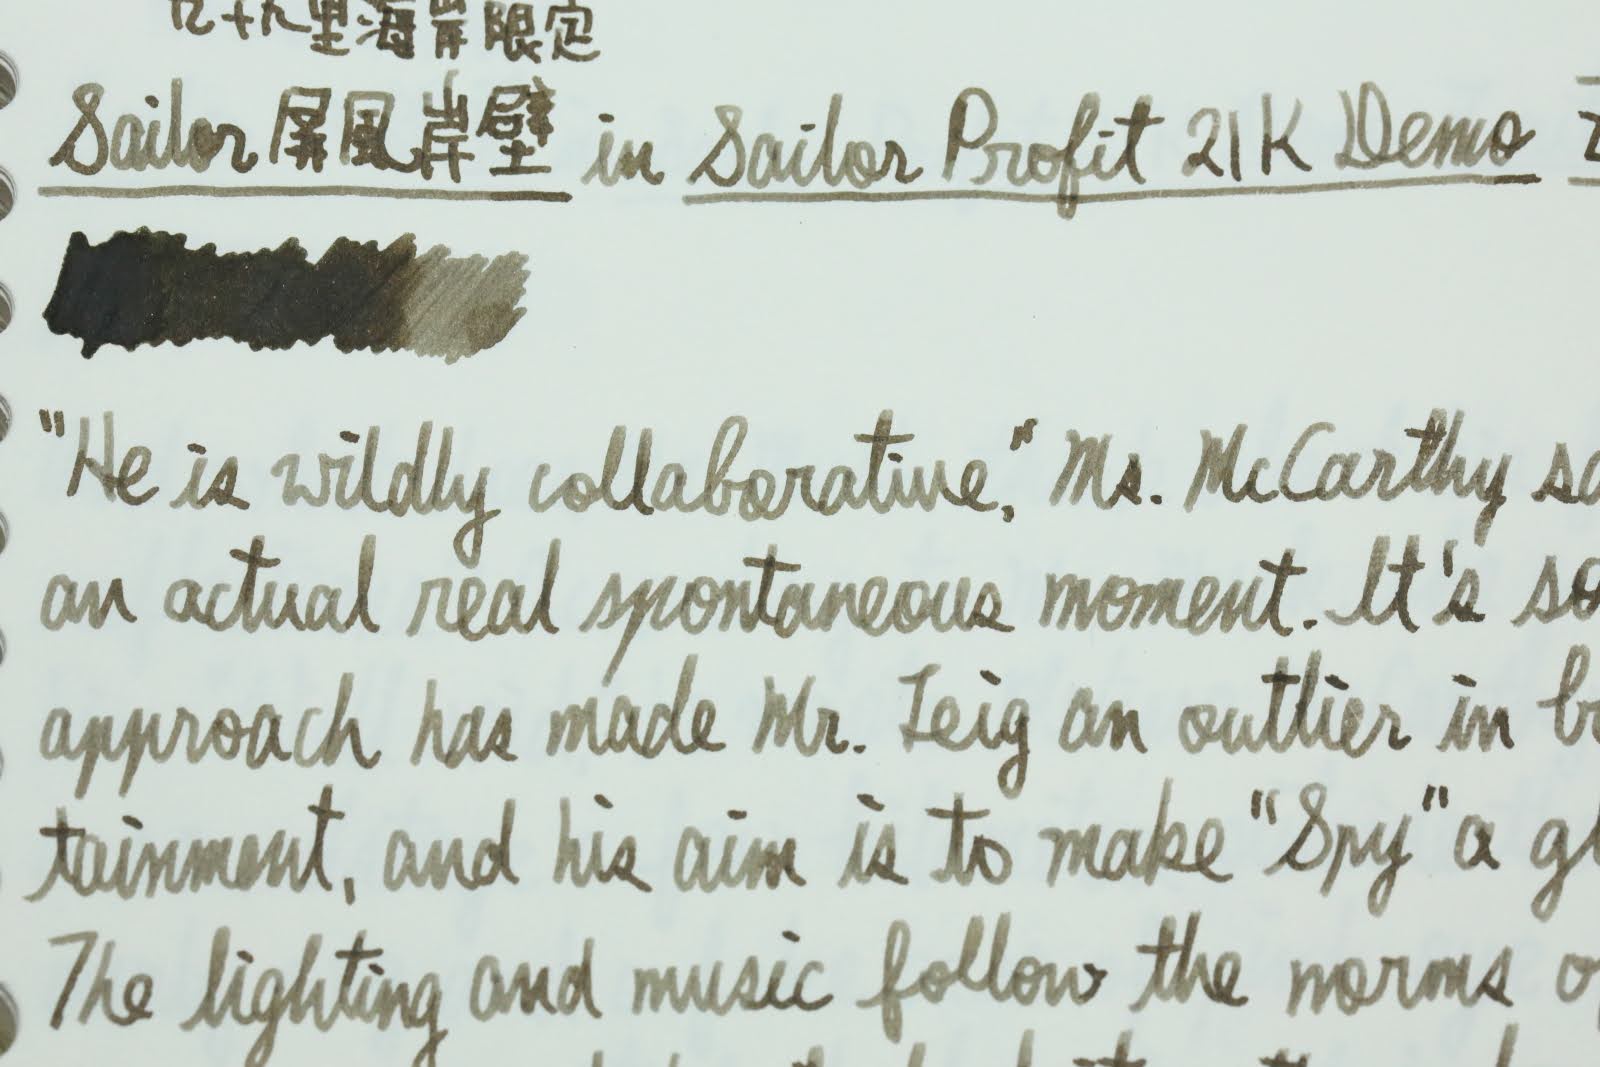 九十九里海岸限定
Sailor 屏風岸壁 in Sailor Profit 21K Demo
"He is wildly collaborative," Ms. McCarthy
an actual real spontaneous moment. It's
approach has made Mr. Feig an outlier in
tainment, and his aim is to make "Spy" a
The lighting and music follow the norms